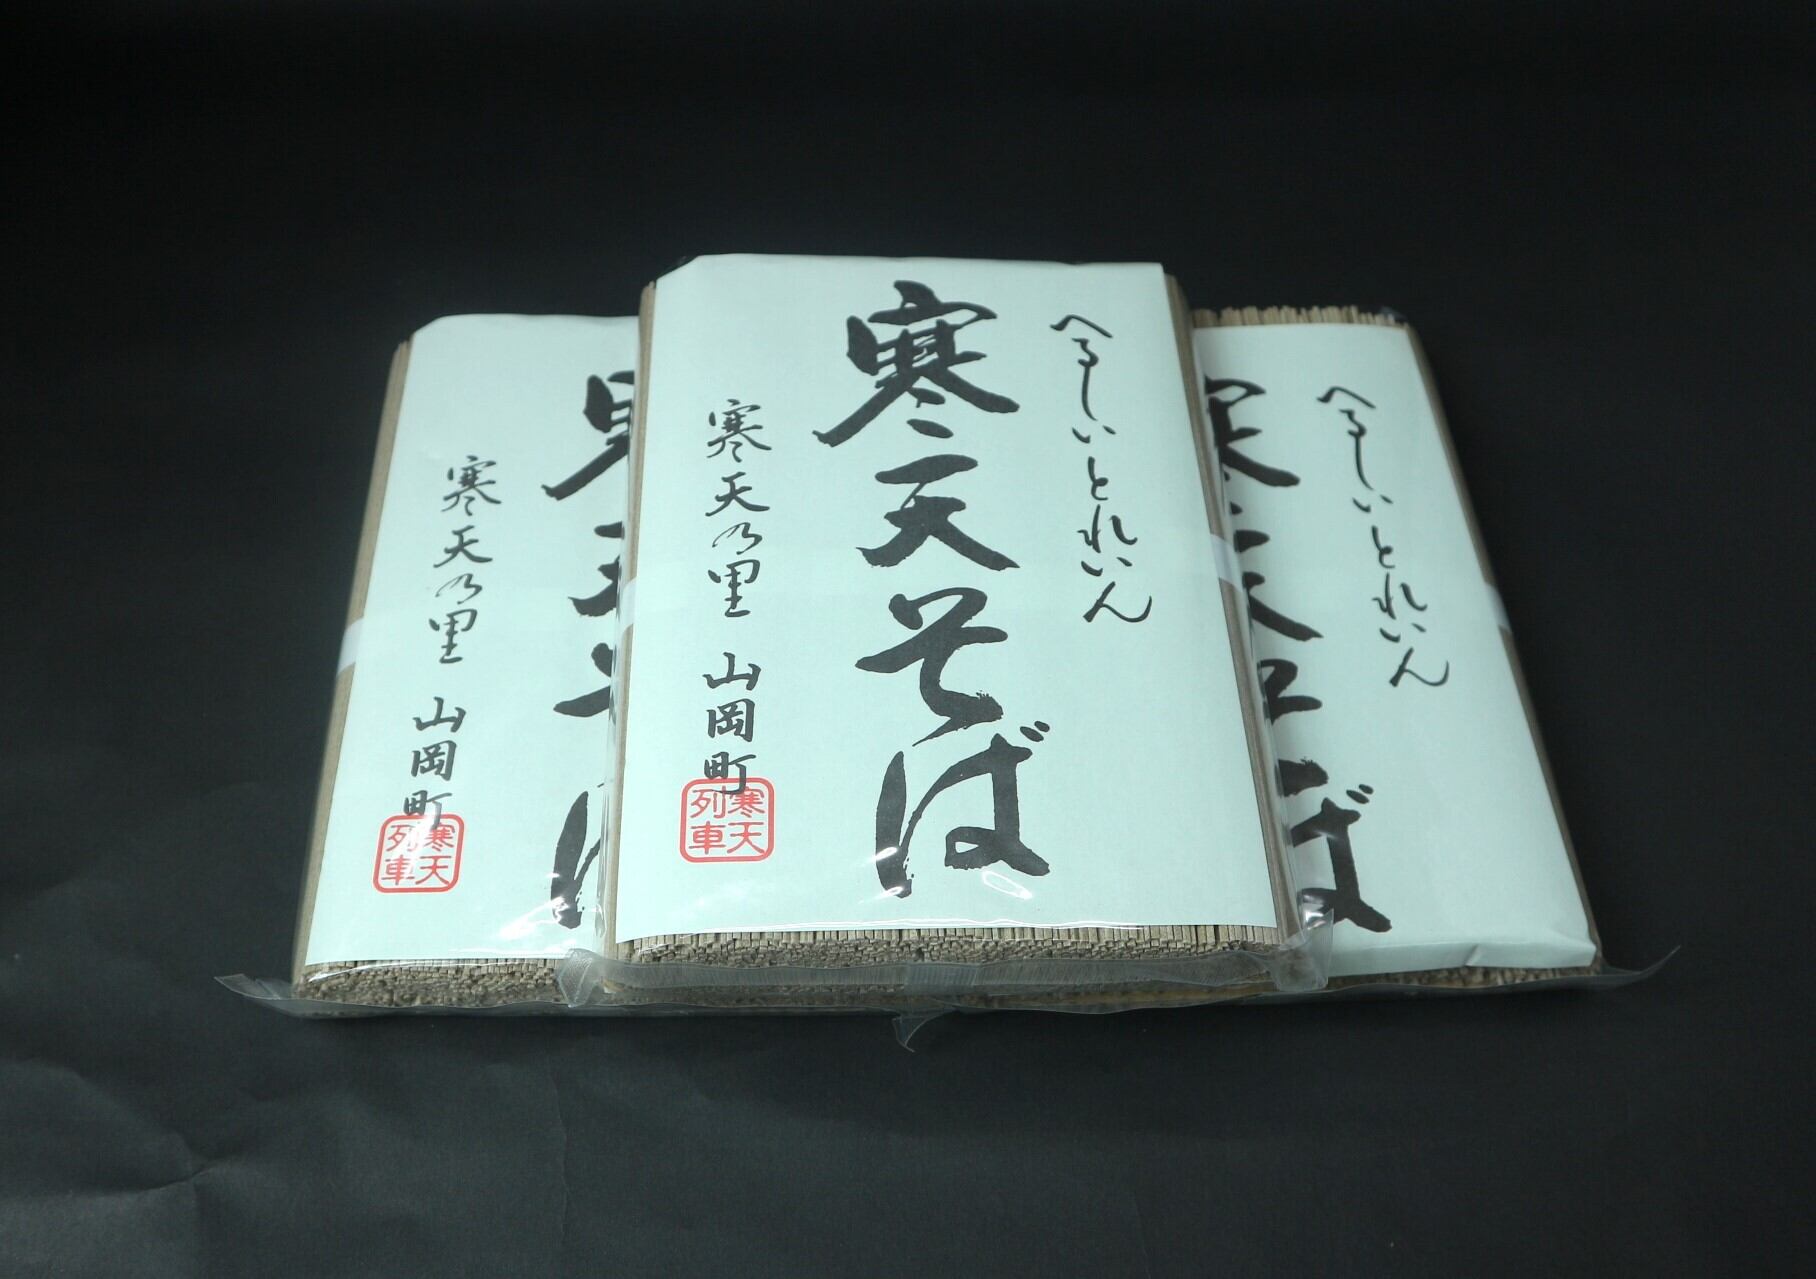 へるしいとれいん
寒天そば
寒天乃里 山岡町
寒天
列車
寒天乃里 山岡町
寒天
列車
へるしいとれいん
寒天そば